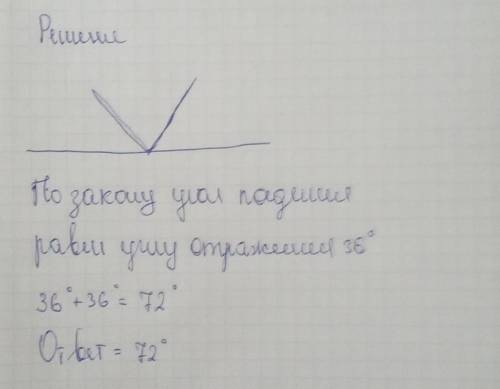 Решение
По закону угол падения
равен углу отражения 36°
36°+36°= 72°
Ответ = 72°